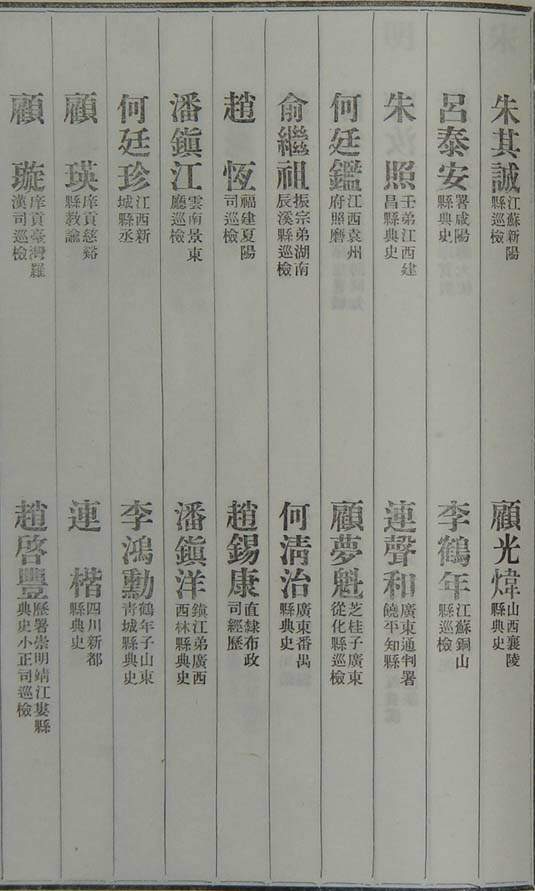 朱其誠江蘇新陽縣巡檢
顧光煒山西襄陵縣典史
呂泰安署咸陽縣典史
李鶴年江蘇銅山縣巡檢
朱照壬弟江西建昌縣典史
連聲和廣東通判署饒平知縣
何廷鑑江西袁州府照磨
顧夢魁芝桂子廣東從化縣巡檢
俞繼祖振宗弟湖南辰溪縣巡檢
何清治廣東番禺縣典史
趙恆福建夏陽司巡檢
趙錫康直隸布政司經歷
潘鎭江雲南景東廳巡檢
潘鎭洋鎭江弟廣西西林縣典史
何廷珍江西新城縣丞
李鴻勳鶴年子山東青城縣典史
顧瑛庠貢慈谿縣教諭
連楷四川新都縣典史
顧璇庠貢臺灣羅漢司巡檢
趙啓豐歷署崇明靖江婁縣典史小正司巡檢